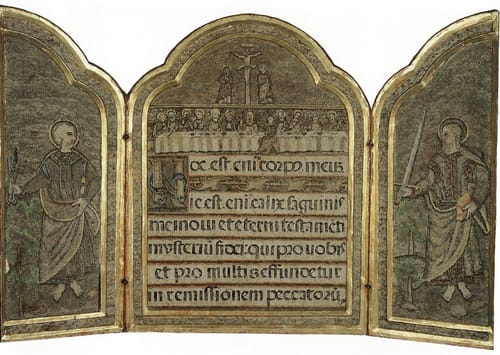 Hoc est eni corpꝰ meū
Hic est eni calix sāguinis
mei noui et eterni testamēti
mysteriū fidei: qui pro vobis
et pro multis effundetur
in remissionem peccatorū